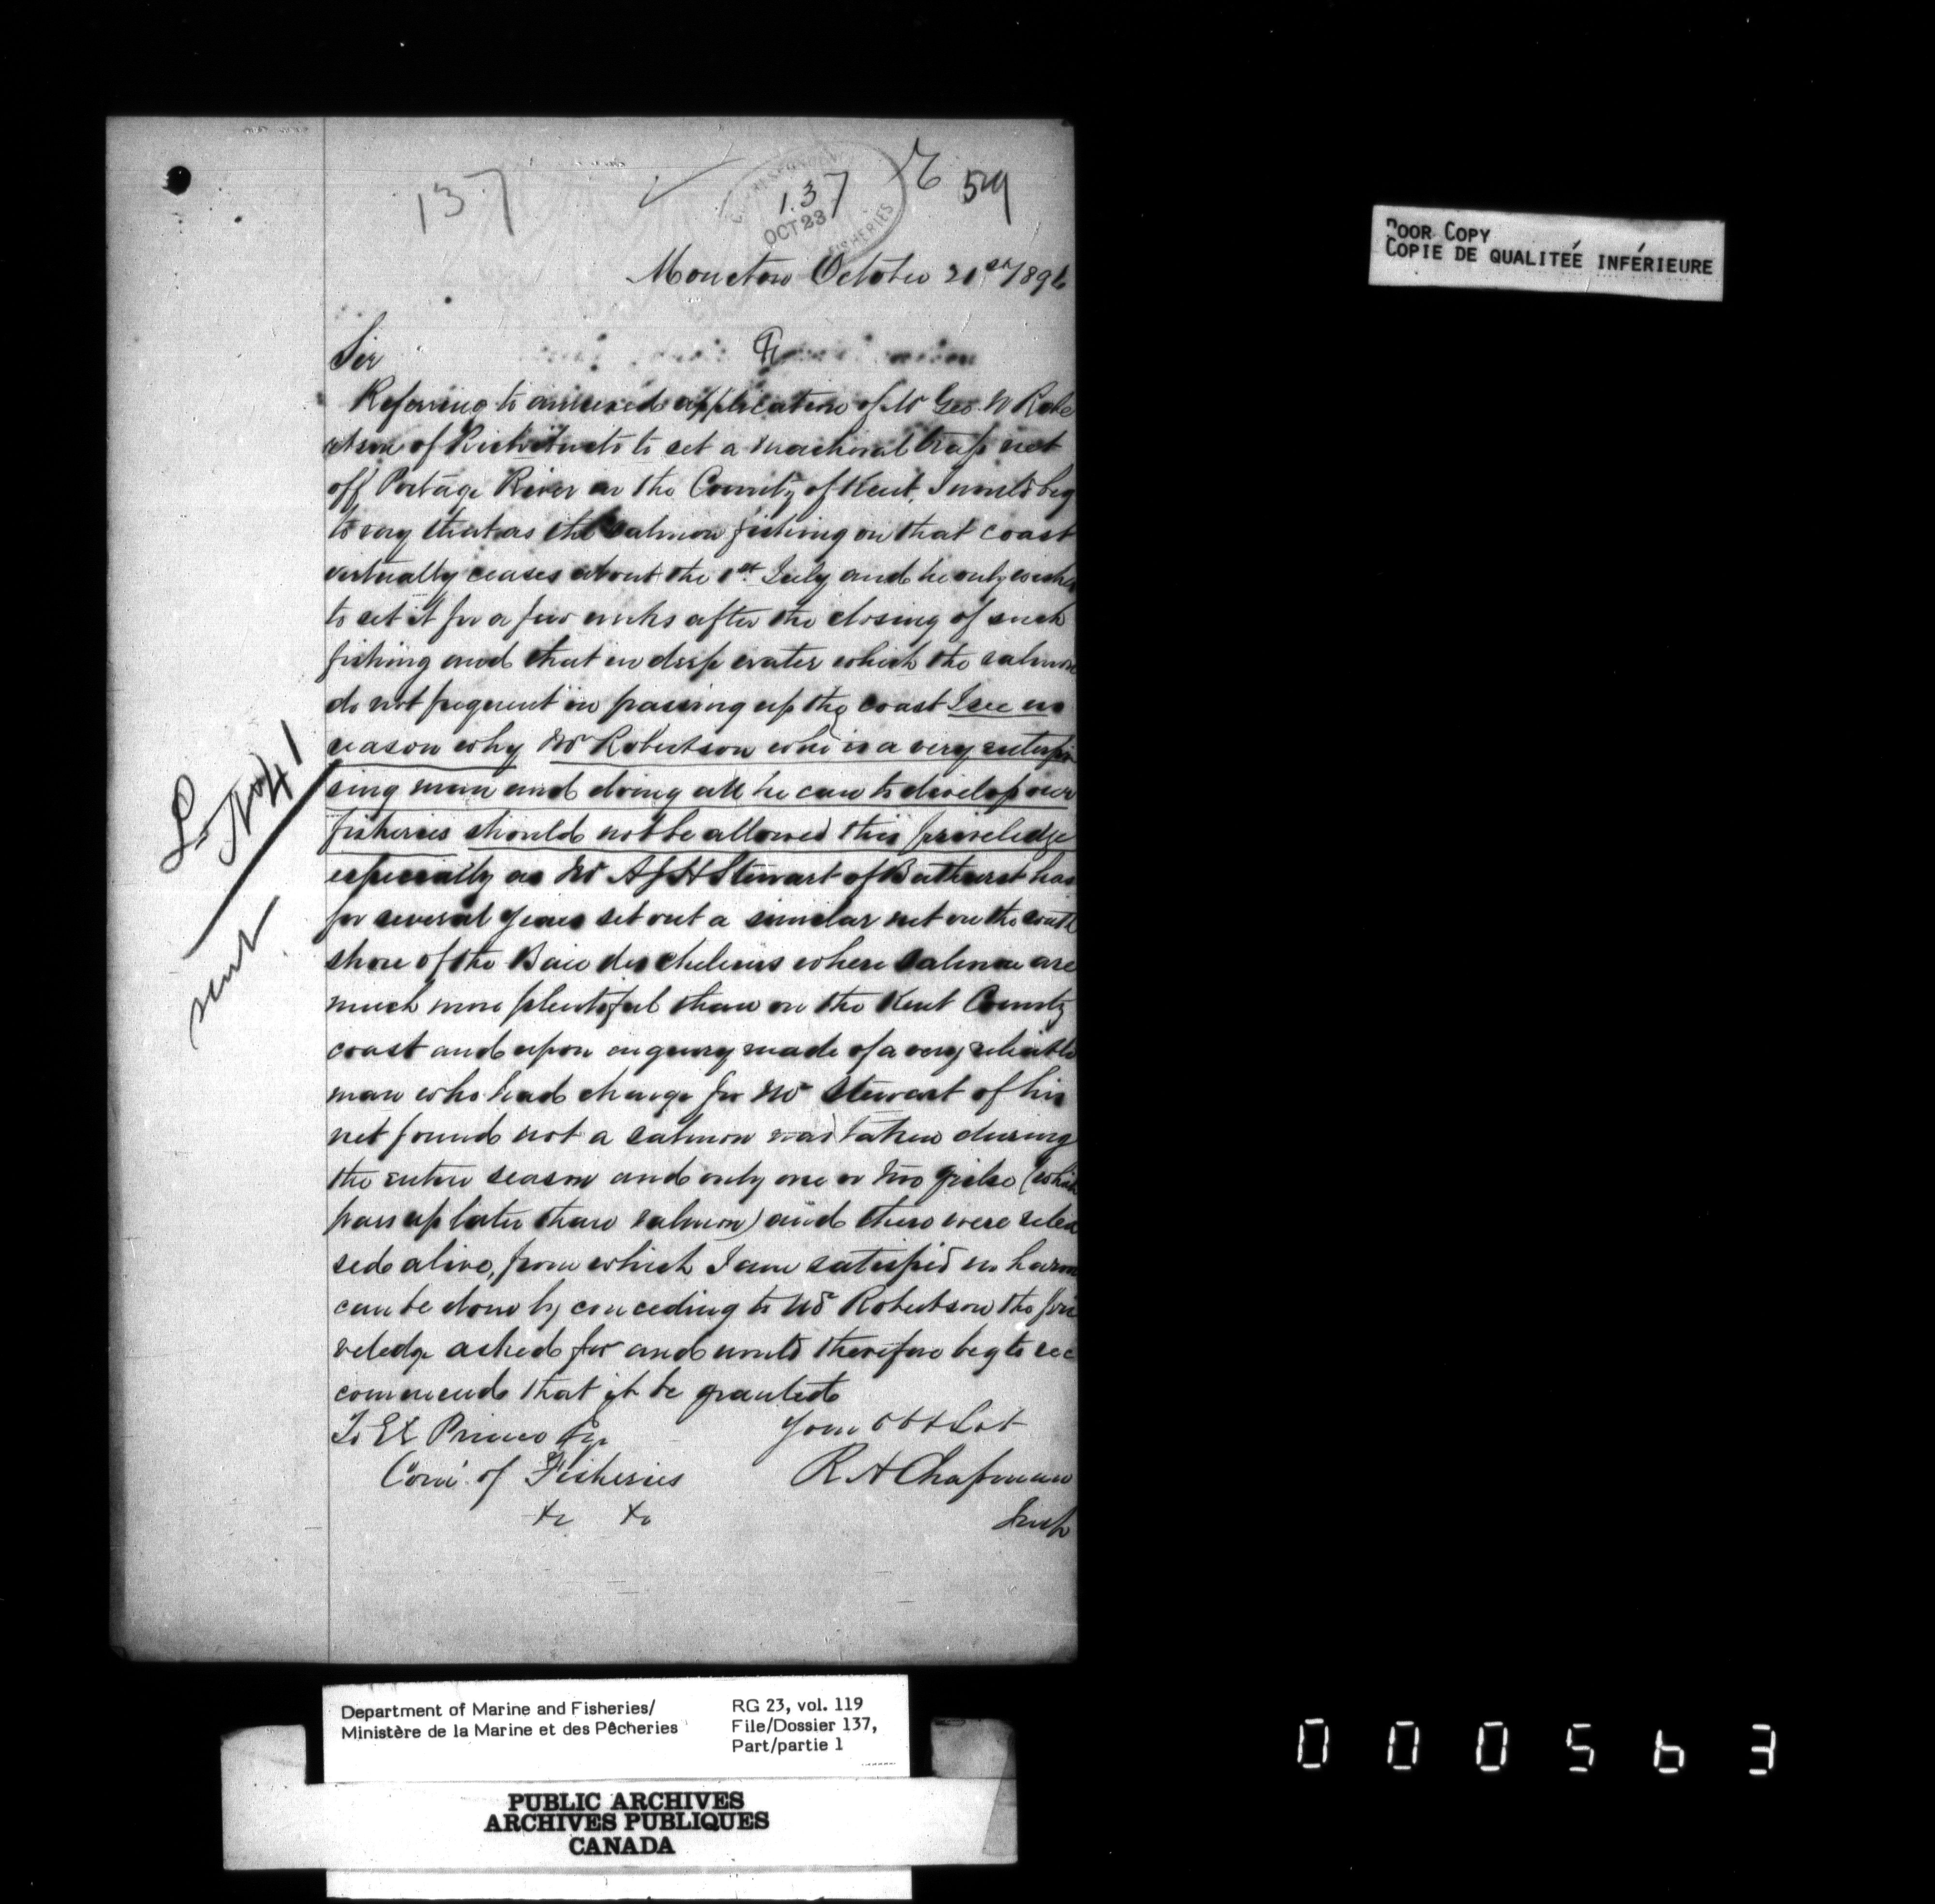 137
137
OCT 23
FISHERIES
54
Moncton October 21st 1896
Sir
Referring to annexed application of Mr Geo. W Robe
rtson of Richibucto to set a mackeral trap net
off Portage River in the County of Kent, I would beg
to say that as the salmon fishing on that coast
virtually ceases about the 1st July and he only wishes
to set it for a few weeks after the closing of such
fishing and that in deep water which the salmon
do not frequent in passing up the coast I see no
reason why Mr Robertson who is a very enterpri
sing man and doing all he can to develop our
fisheries should not be allowed this priveledge
especially as Mr A J H Stewart of Bathurst has
for several years set out a similar net on the south
shore of the Baie des Chaleurs where salmon are
much more plentiful than on the Kent County
coast and upon enquiry made of a very reliable
man who had charge for Mr Stewart of his
net found not a salmon was taken during
the entire season and only one or two grilse (which
pass up later than salmon) and these were relea
sed alive, from which I am satisfied no harm
can be done by conceding to Mr Robertson the pri
veledge asked for and would therefore beg to rec
commend that it be granted
To E E Prince Esq
Your Obt Svt
Com. of Fisheries
R A Chapman
&c &c
Insp
Poor Copy
Copie de qualitée inférieure
Department of Marine and Fisheries/
Ministère de la Marine et des Pêcheries
RG 23, vol. 119
File/Dossier 137,
Part/partie 1
PUBLIC ARCHIVES
ARCHIVES PUBLIQUES
CANADA
000563